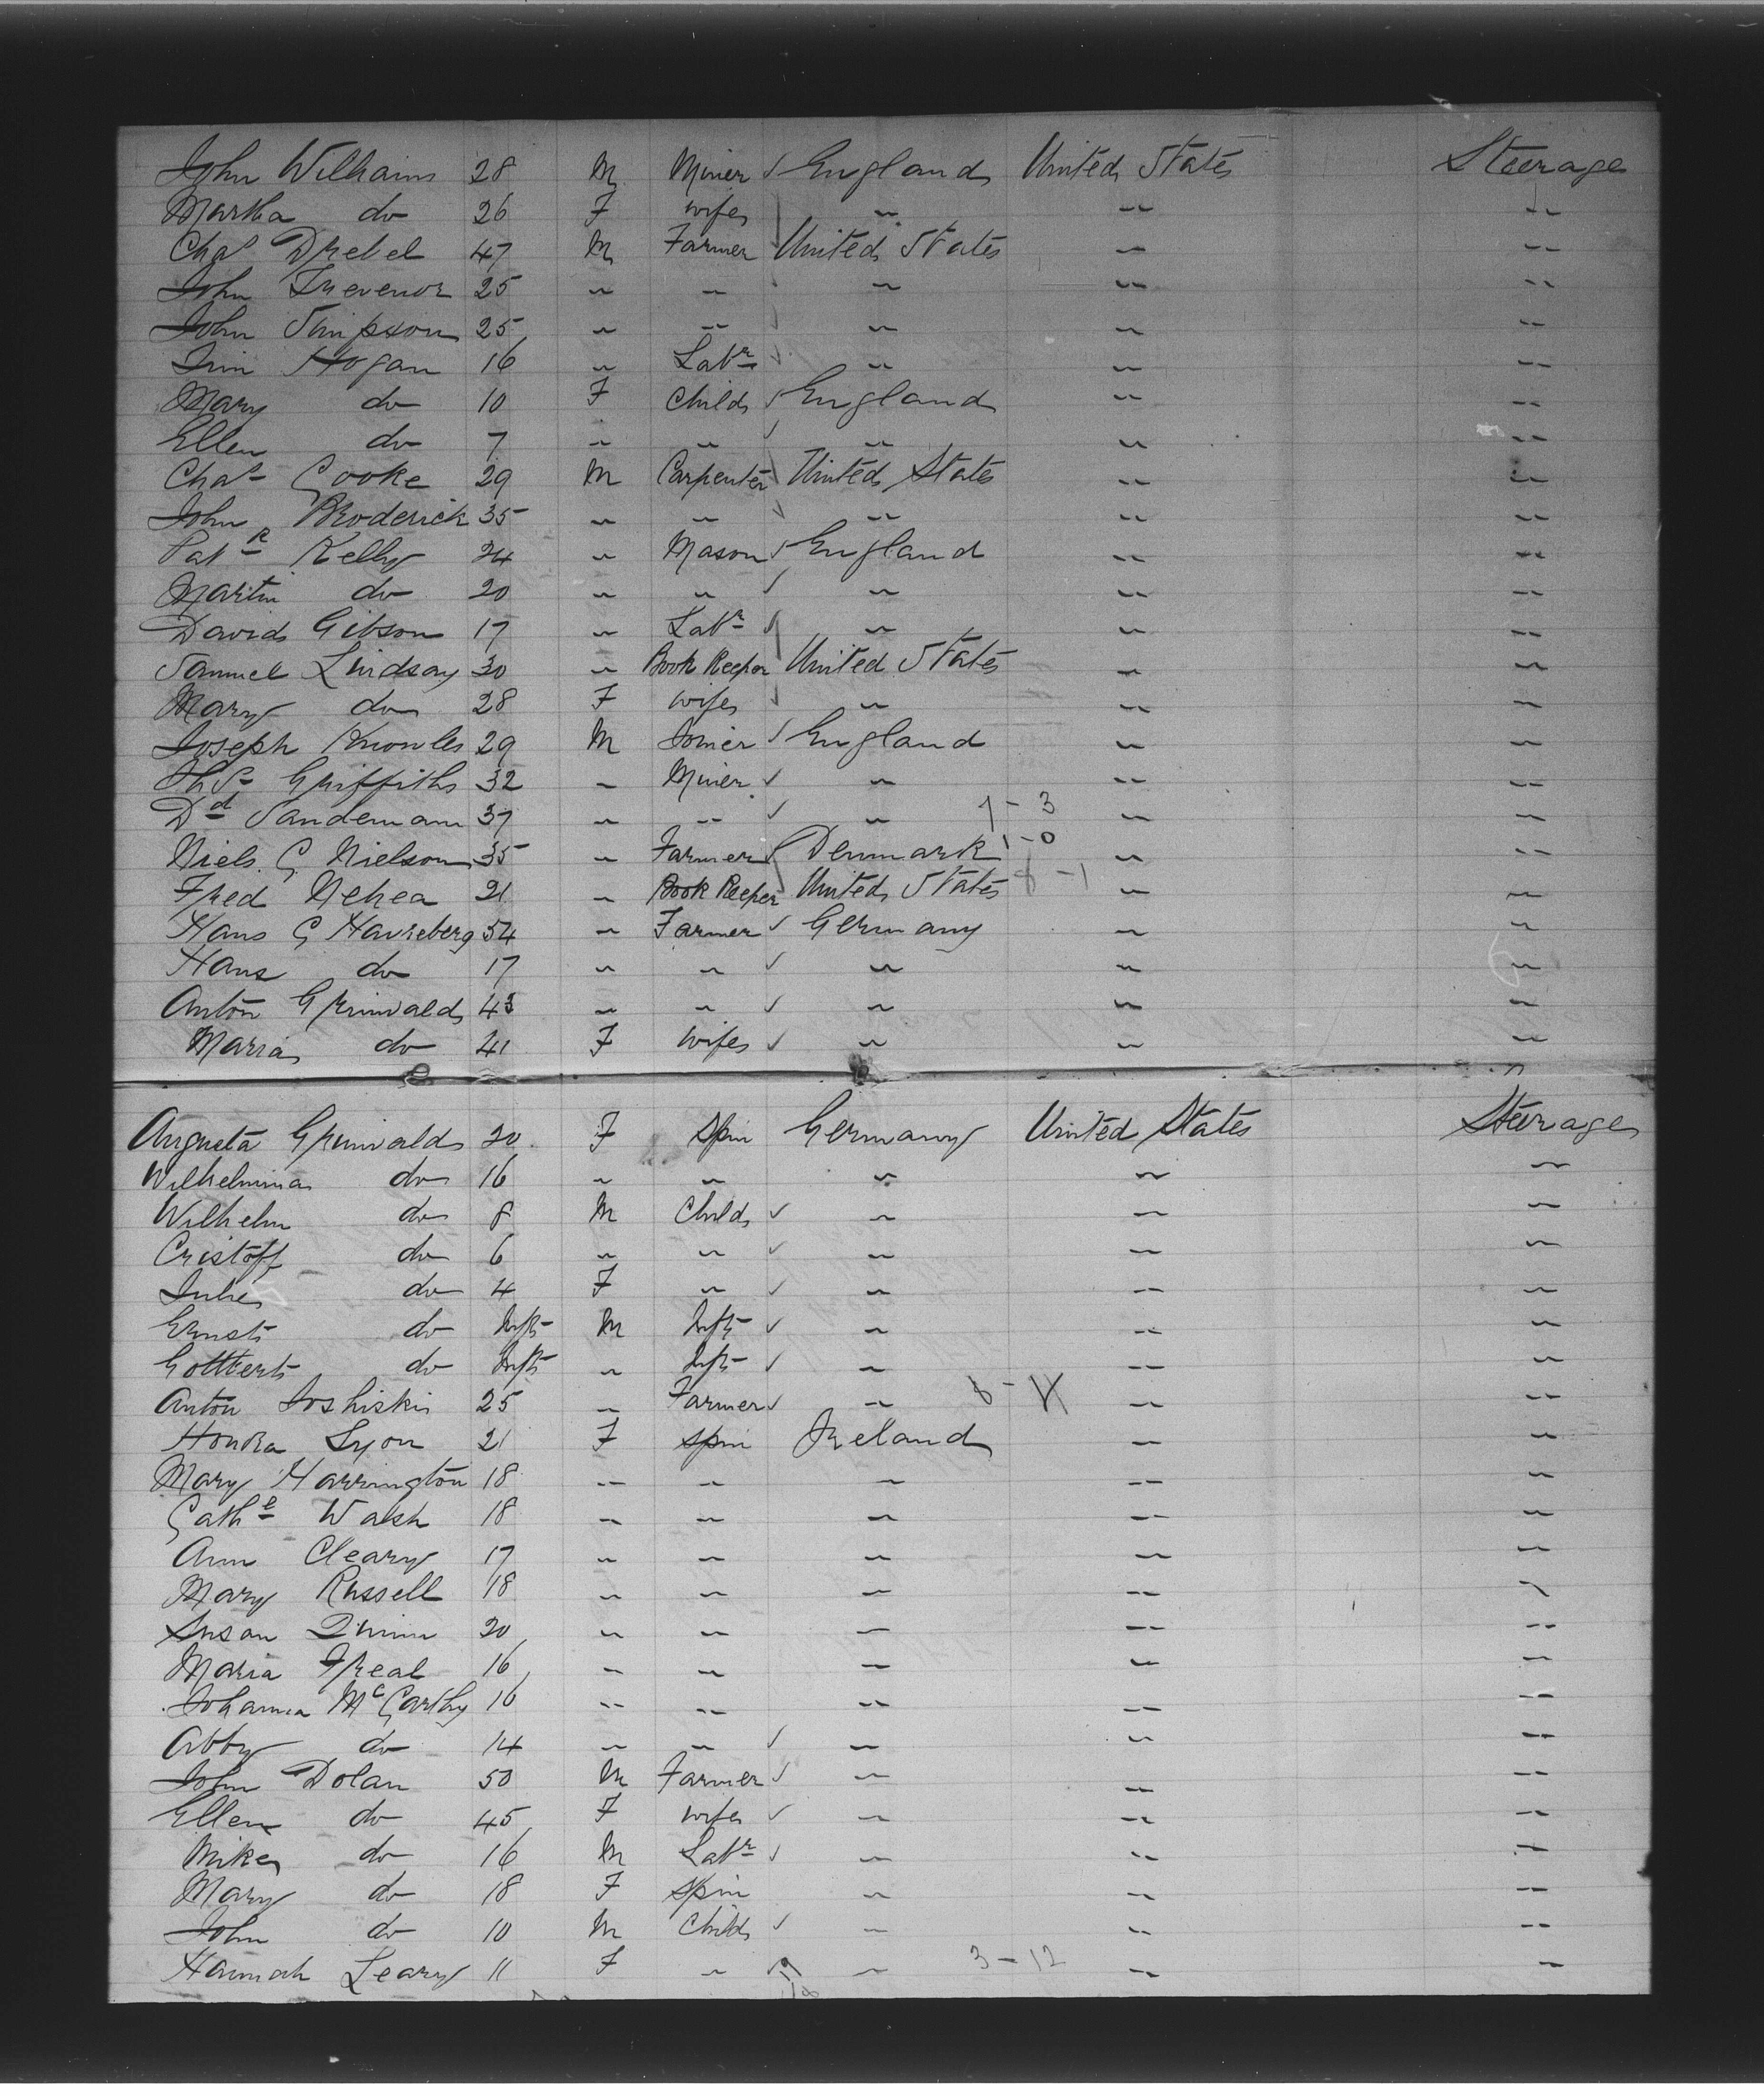 John Williams 28 M Miner ✓ England United States Steerage
Martha do 26 F wife " " "
Chas Drebel 47 M Farmer United States " "
John Trevenor 25 " " " " "
John Simpson 25 " " " " "
Jim Hogan 16 " Labr " " "
Mary do 10 F Child ✓ England " "
Ellen do 7 " " ✓ " " "
Chas Cooke 29 M Carpenter United States " "
John Broderick 35 " " " " "
Patk Kelly 24 " Mason ✓ England " "
Martin do 20 " " ✓ " " "
David Gibson 17 " Labr ✓ " " "
Samuel Lindsay 30 " Book Keeper United States " "
Mary do 28 F wife " " "
Joseph Knowles 29 M Joiner ✓ England " "
Thos Griffiths 32 " Miner ✓ " " "
Dd Sandemann 37 " " ✓ " 7-3 " "
Niels C Nielson 35 " Farmer ✓ Denmark 1-0 " "
Fred Nehea 21 " Book Keeper United States 8-1 " "
Hans C 54 " Farmer ✓ Germany " "
Hans do 17 " " ✓ " " "
Anton Grunwald 43 " " ✓ " " "
Maria do 41 F wife ✓ " " "
Augusta Grunwald 20 F Spin Germany United States Steerage
Wilhelmina do 16 " " " " "
Wilhelm do 8 M Child ✓ " " "
Cristoff do 6 " " ✓ " " "
Julie do 4 F " ✓ " " "
Ernst do Inft M Inft ✓ " " "
Gottbert do Inft " Inft ✓ " " "
Anton Joshiski 25 " Farmer ✓ " 8- " "
Honora Lyon 21 F Spin Ireland " "
Mary Harrington 18 " " " " "
Cathe Walsh 18 " " " " "
Ann Cleary 17 " " " " "
Mary Russell 18 " " " " "
Susan Quinn 20 " " " " "
Maria Freal 16 " " " " "
Johanna McCarthy 16 " " " " "
Abby do 14 " " ✓ " " "
John Dolan 50 M Farmer ✓ " " "
Ellen do 45 F wife ✓ " " "
Mike do 16 M Labr ✓ " " "
Mary do 18 F Spin " " "
John do 10 M Child ✓ " " "
Hannah Leary 11 F " " 3-12 " "